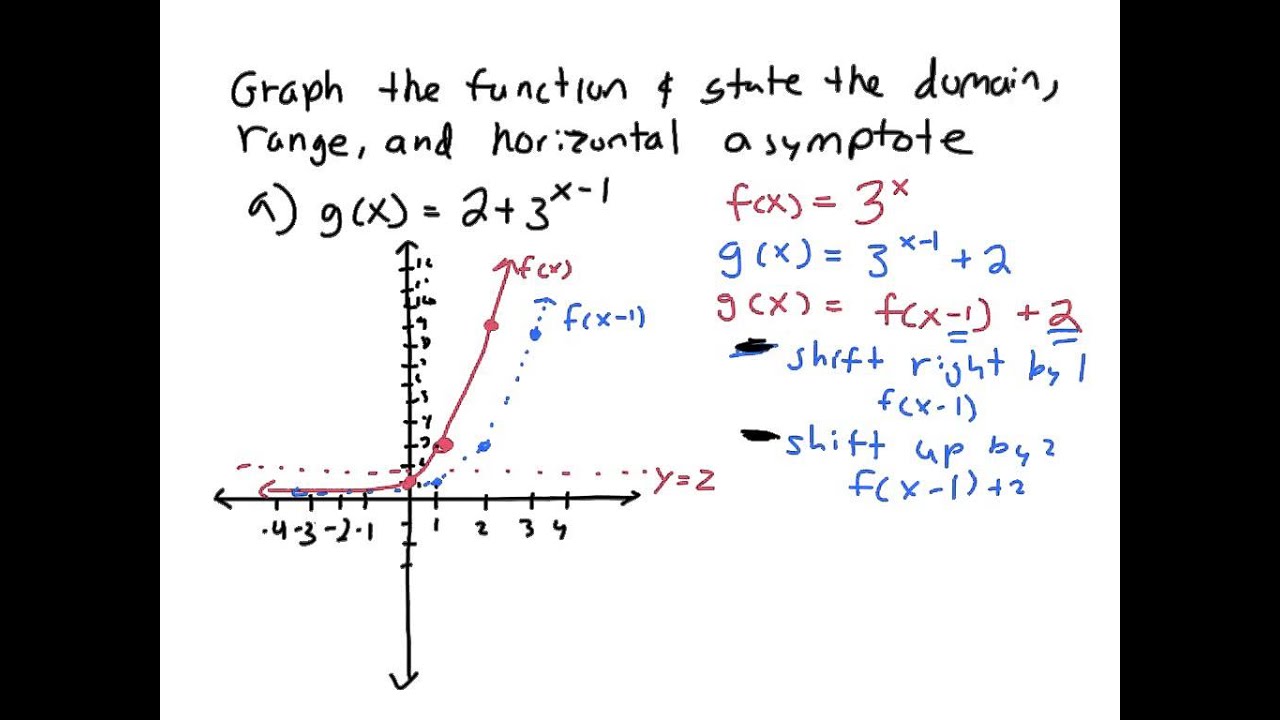 Graph the function & state the domain,
range, and horizontal asymptote
a) g(x) = 2 + 3^{x-1}
f(x) = 3^x
g(x) = 3^{x-1} + 2
g(x) = f(x-1) + 2
shift right by 1
f(x-1)
shift up by 2
f(x-1)+2
f(x)
f(x-1)
y=2
12
11
10
9
8
7
6
5
4
3
2
1
-4 -3 -2 -1 1 2 3 4